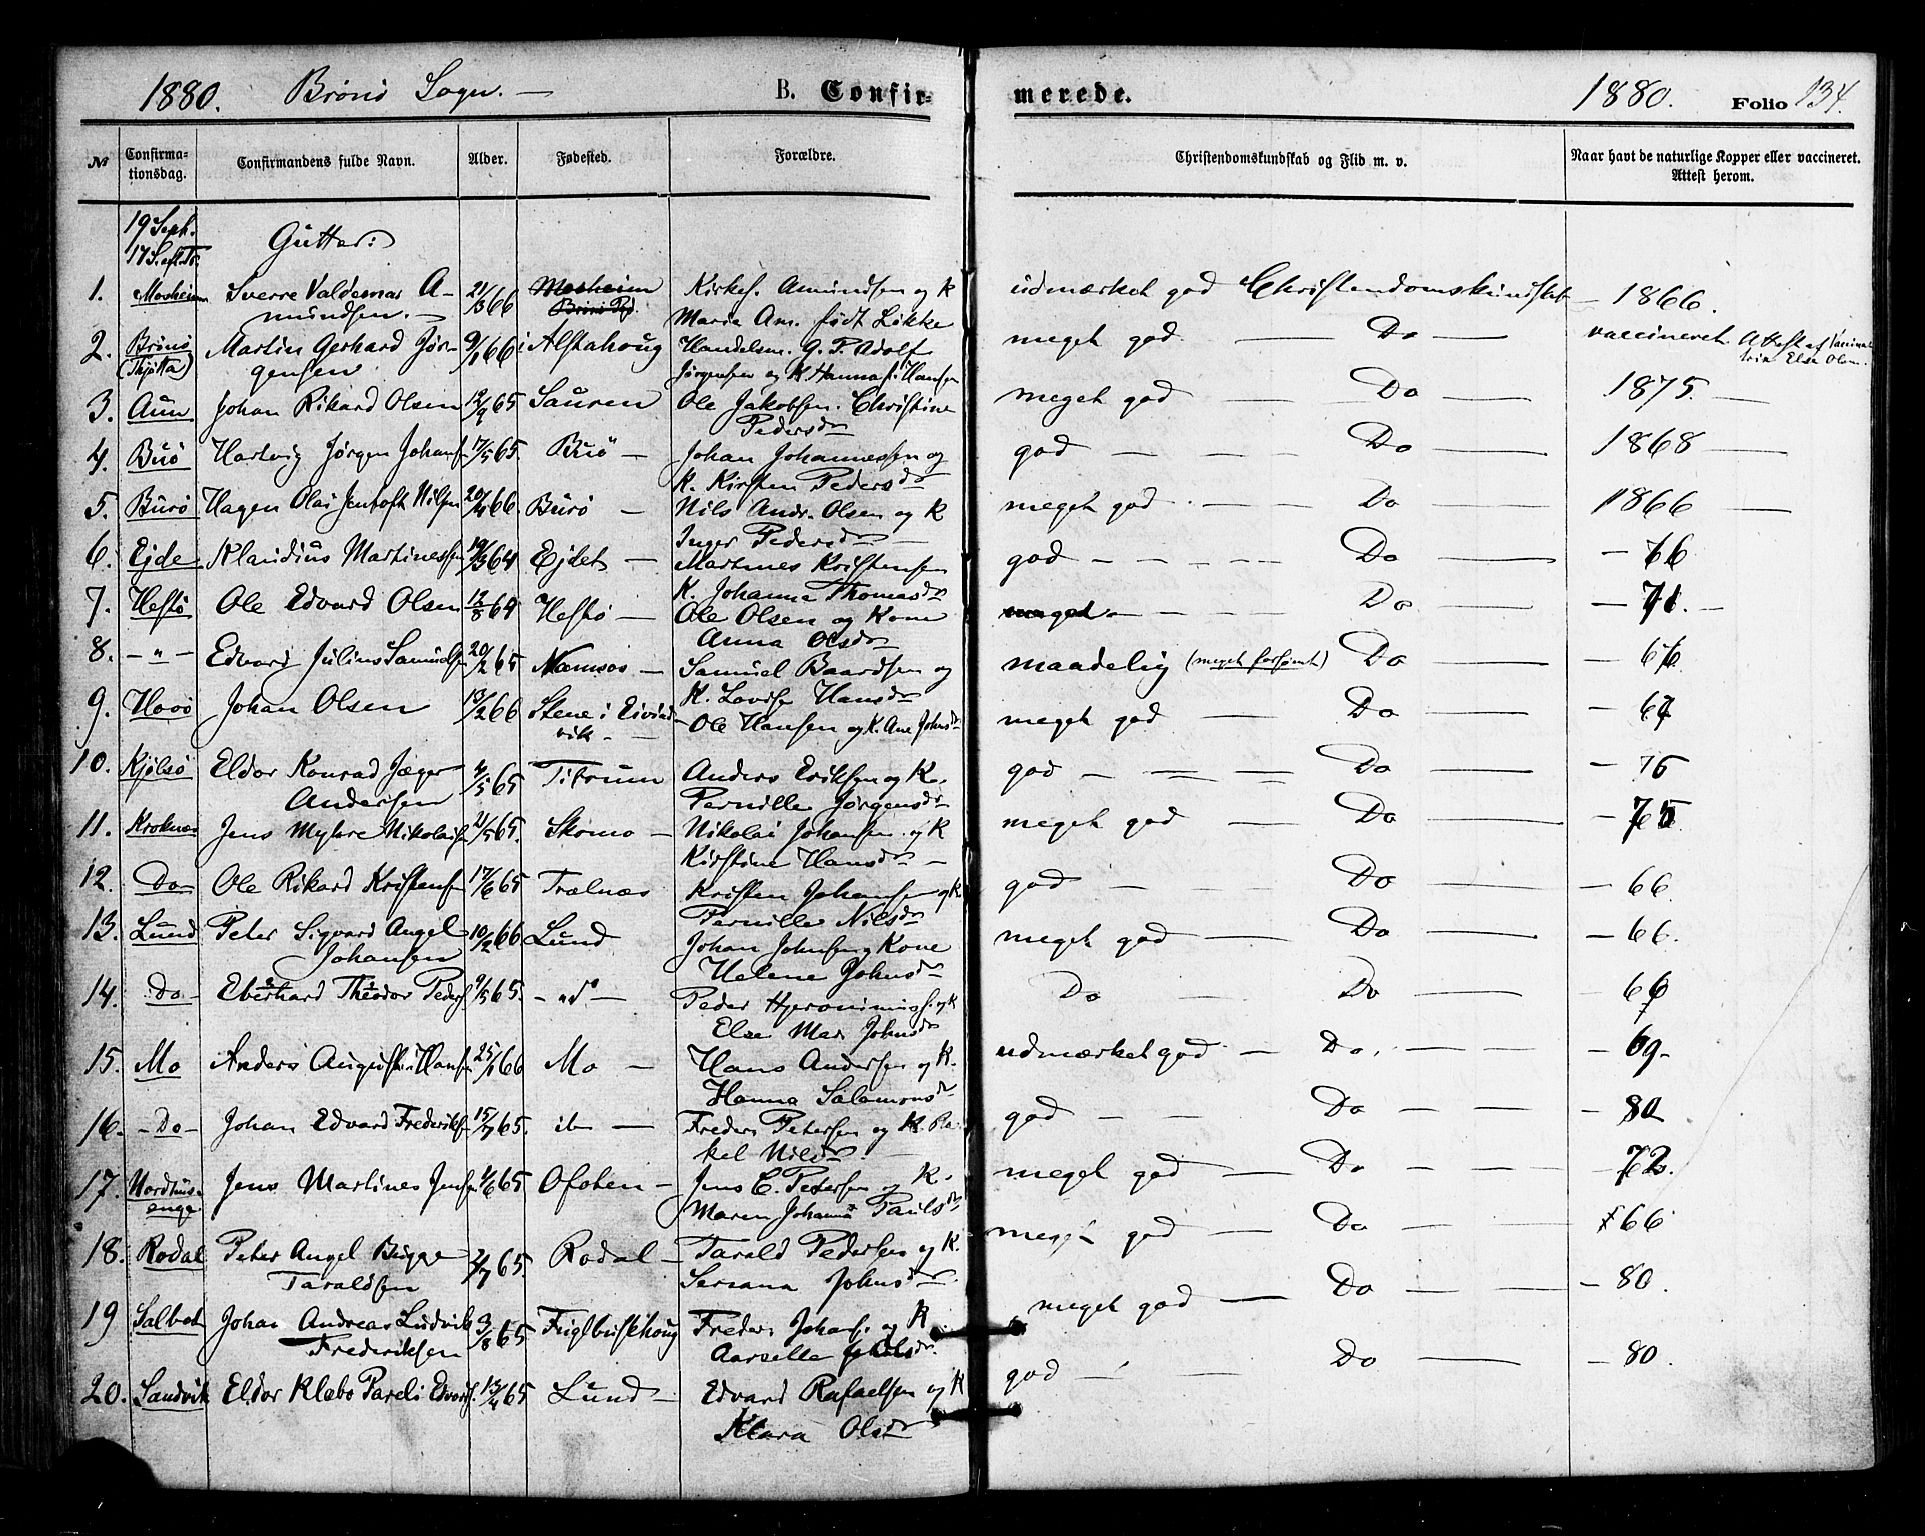 1880. Brönö Sogn. — B. Confir-
merede. 1880. Folio 134.
№ Confirma-tionsdag. Confirmandens fulde Navn. Alder. Fødested. Forældre. Christendomskundskab og Flid m. v. Naar havt de naturlige Kopper eller vaccineret. Attest herom.
19 Sept.
17 S. eft. Tr. Gutter:
1. Mosheim Sverre Valdemar A- 21/3 66 Mosheim Kirkes. Amundsen og K udmærket god Christendomskundskab — 1866.
mundsen. — Brönö Pd. Maria Am. født Løkke
2. Brönö 9/1 66 i Alstahoug Handelsm. G. P. Adolf meget god — Do — vaccineret Attest af
(Thjötta) Martin Gerhard Jør-
gensen Jørgensen og K. Hanna f. Hansen Else Olsen.
3. Aun Johan Rikard Olsen 12/9 65 Sauren Ole Jakobsen. Christine meget god — Do — 1875. —
Pedersdr
4. Buö Hartvig Jørgen Johans 17/5 65. Buö — Johan Johannessen og god — Do — 1868 —
K. Kirsten Pedersdr
5. Burö Hagen Olai Jentoft Nilsen 20/4 66. Burö — Nils Andr. Olsen og K meget god — Do — 1866 —
Inger Pedersdr —
6. Ejde Klaudius Martinessen 19/3 64 Ejdet — Martines Kristensen god — Do — 66
K. Johanna Thomasdr
7. Hestö Ole Edvard Olsen 12/8 64 Hestö — Ole Olsen og Kone — Do — 71. —
Anna Olsdr
8. — " — Edvard Julius Samuelsen 20/2 65 Namsos — Samuel Baardsen og maadelig (meget forsømt) Do — 66
K. Lovise Hansdr
9. Havö Johan Olsen 13/2 66 Stene i Eivind- Ole Hansen og K. Ane Johnsdr meget god — Do — 67
vik —
10. Kjølsö Eldor Konrad Jæger 4/5 65 Titrum Anders Eriksen og K. god — Do — 75
Andersen Pernille Jørgensdr
11. Kroknes Jens Myhre Nikolais 21/5 65. Skomo — Nikolai Johansen og K meget god — Do — 75
Kirstine Hansdr —
12. Do Ole Rikard Kristens 17/6 65 Trælnæs Kristen Johansen og K god — Do — 66
Pernille Nilsdr
13. Lund Peter Sigvard Angel 10/2 66 Lund Johan Johnsen og Kone meget god — Do — 66.
Johansen Helene Johnsdr
14. Do — Eberhard Theodor Peders 9/5 65. — " — Peder Hjeronimuss. og K Do — Do — 66
Else Mar. Johnsdr
15. Mo Anders Augustin Hansen 25/1 66 Mo — Hans Andersen og K. udmærket god — Do. — 69.
Hanna Salamonsdr
16. — Do — Johan Edvard Frederiks 15/7 65. ib — Freder. Petersen og K. Ra- god — Do — 80
kel Nilsdr —
17. Nordhus- Jens Martines Jensen 4/6 65 Ofoten — Jens C. Petersen og K. meget god — Do — 72.
enge Maren Johanna Paulsdr
18. Rodal Peter Angel Bugge 2/7 65. Rodal — Tarald Pedersen og K. meget god — Do — 66
Taraldsen Seriana Johnsdr
19 Salbet Johan Andreas Ludvik 3/8 65 Fuglbuskhoug Freder. Johans. og K meget god — Do — 80.
Frederiksen Aarselle
20. Sandvik Eldor Klæbo Pareli Edvards. 13/4 65 Lund — Edvard Rafaelsen og K god — Do — 80.
Klara Olsdr